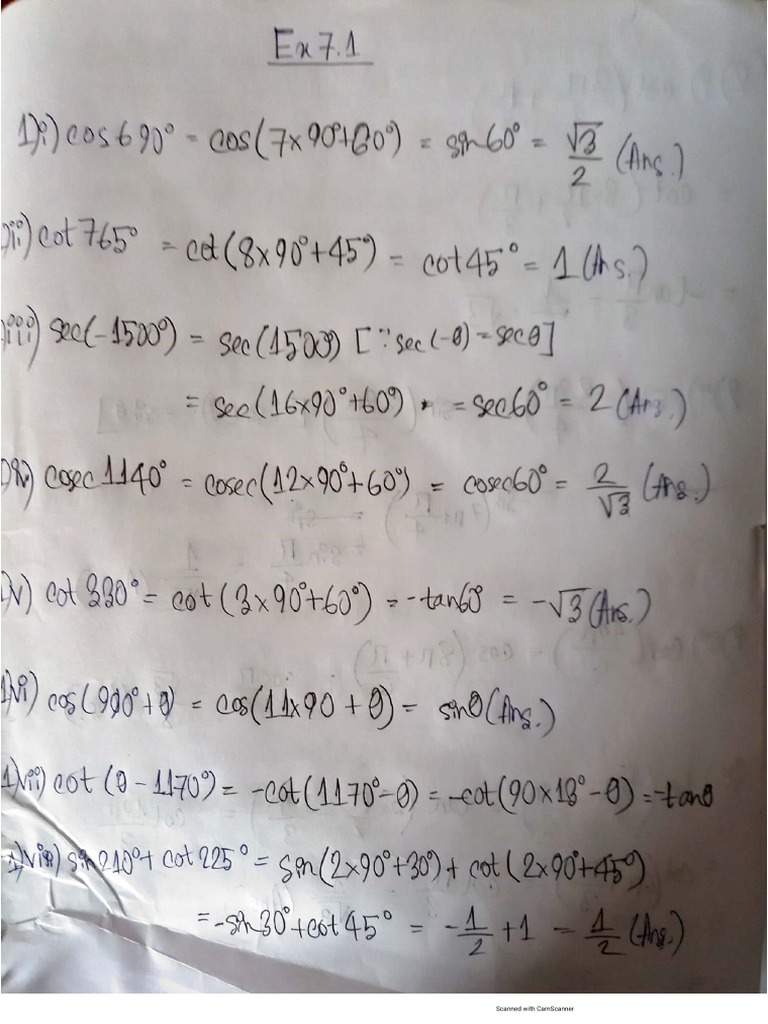 Ex 7.1
1)i) cos 690° = cos(7×90°+60°) = sin60° = √3/2 (Ans.)
ii) cot 765° = cot(8×90°+45°) = cot 45° = 1 (Ans.)
iii) sec(-1500°) = sec(1500°) [∵ sec(-θ) = secθ]
= sec(16×90°+60°) = sec60° = 2 (Ans.)
cosec 1140° = cosec(12×90°+60°) = cosec60° = 2/√3 (Ans.)
v) cot 330° = cot (3×90°+60°) = -tan60° = -√3 (Ans.)
1)vi) cos(990°+θ) = cos(11×90 + θ) = sinθ (Ans.)
1)vii) cot (θ - 1170°) = -cot(1170°-θ) = -cot(90×13°-θ) = -tanθ
1)viii) sin 210° + cot 225° = sin(2×90°+30°) + cot(2×90°+45°)
= -sin30° + cot 45° = -1/2 + 1 = 1/2 (Ans.)
Scanned with CamScanner